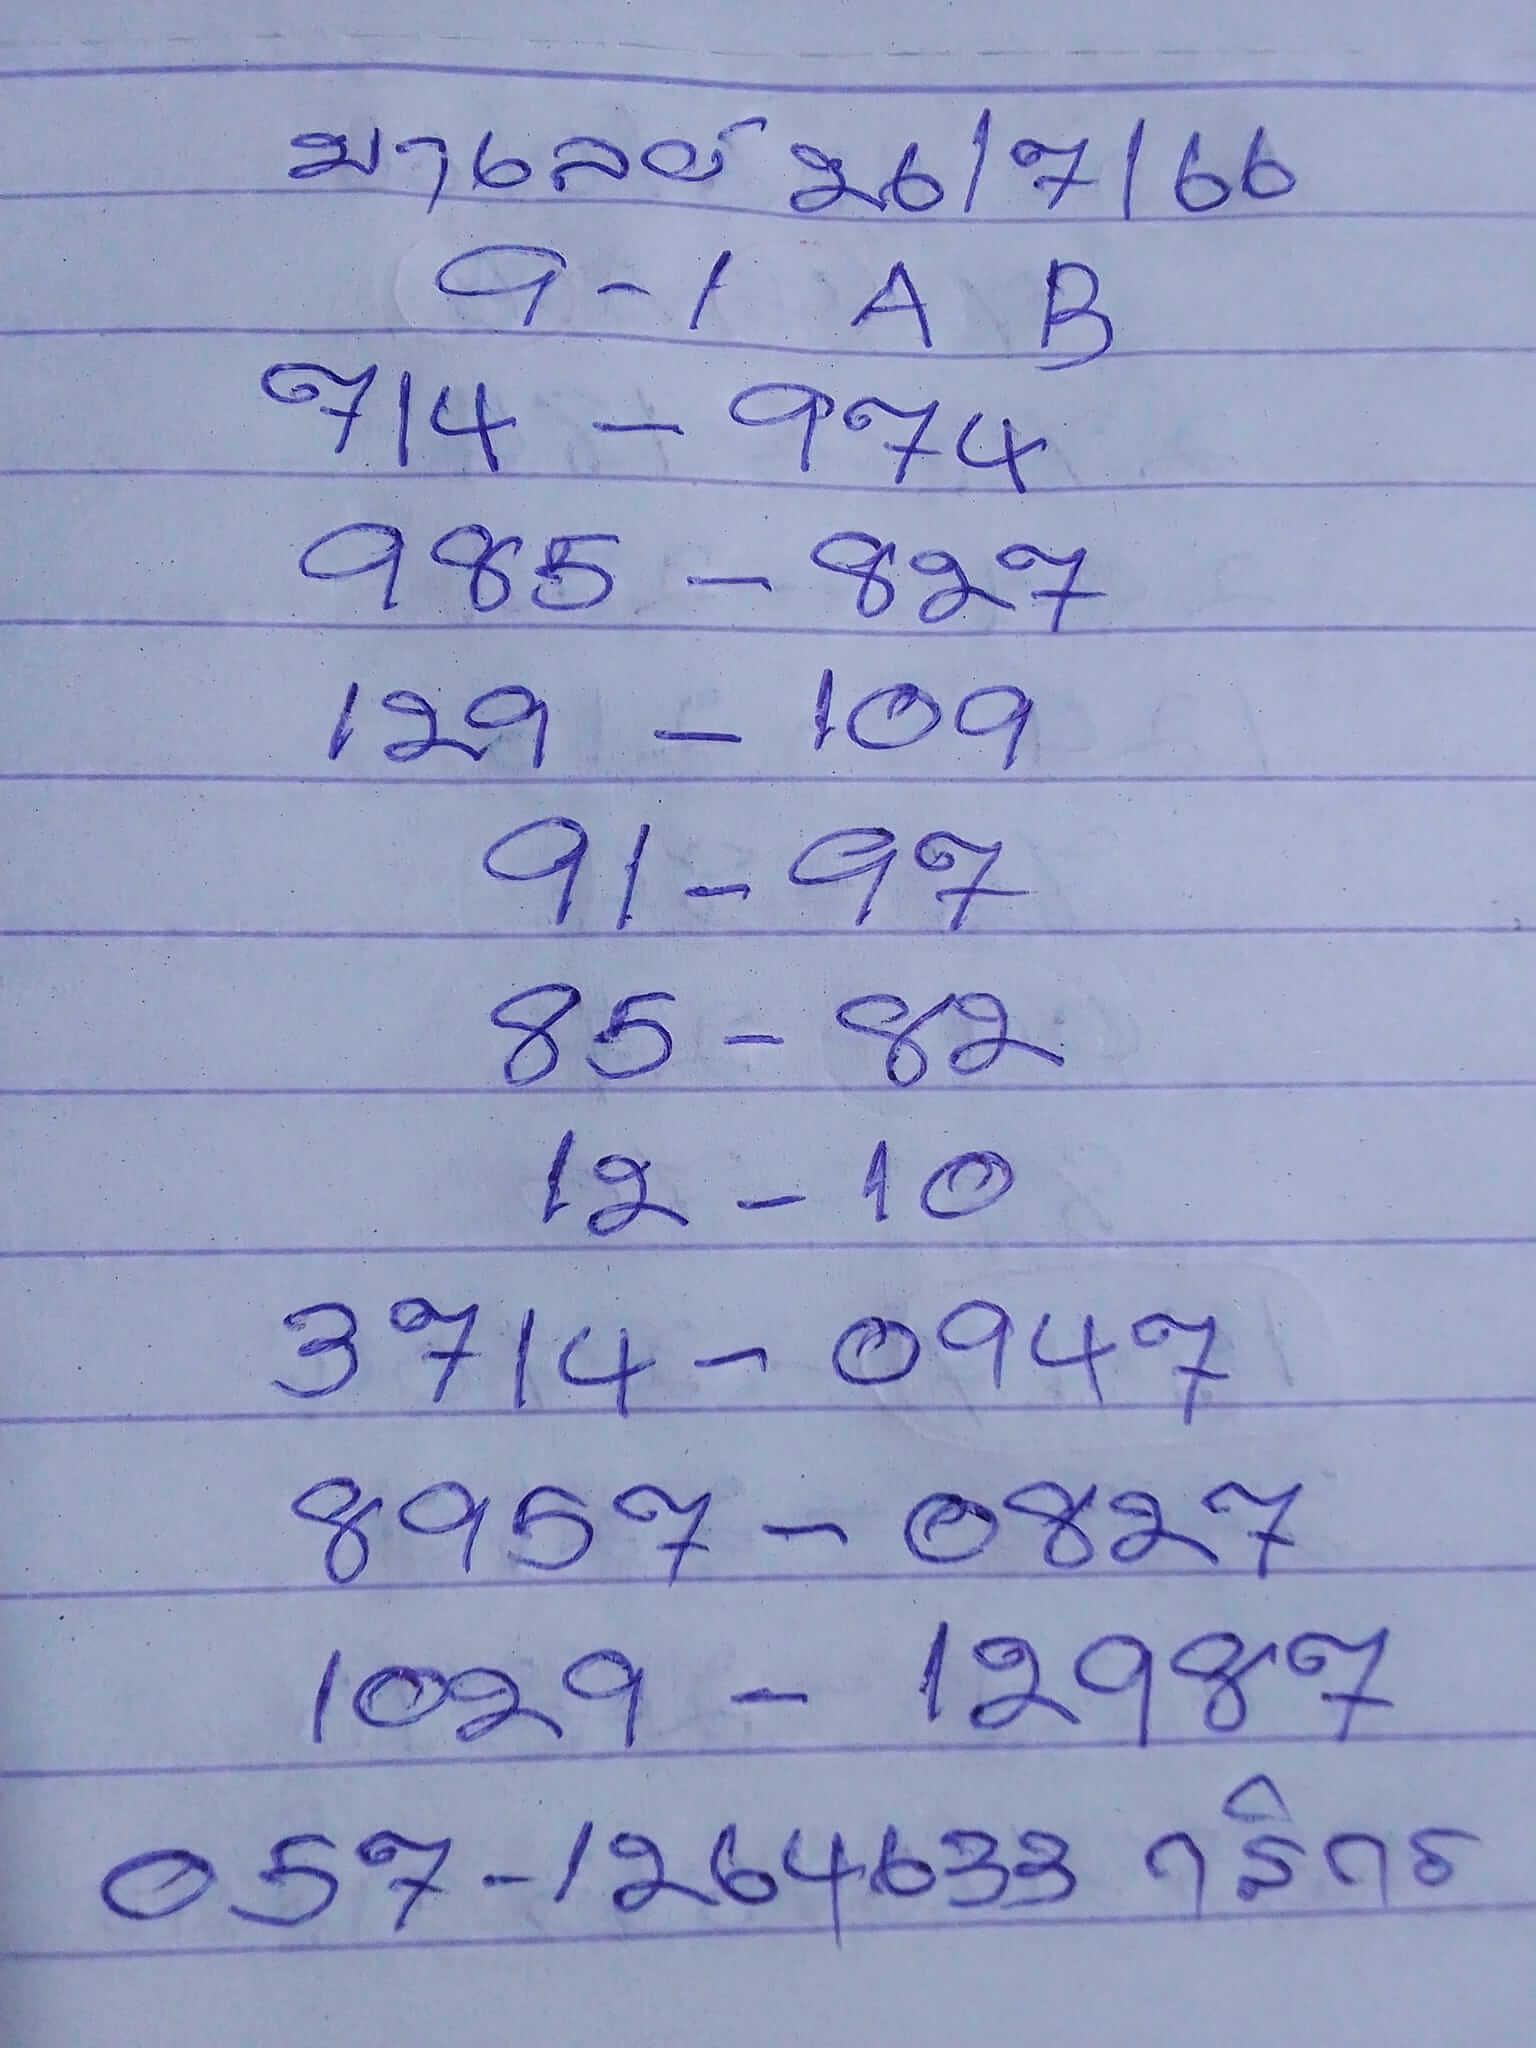 มาเลย์ 26/7/66
9-1 A B
714 - 974
985 - 827
129 - 109
91 - 97
85 - 82
12 - 10
3714 - 0947
8957 - 0827
1029 - 12987
057-1264633 กสิกร